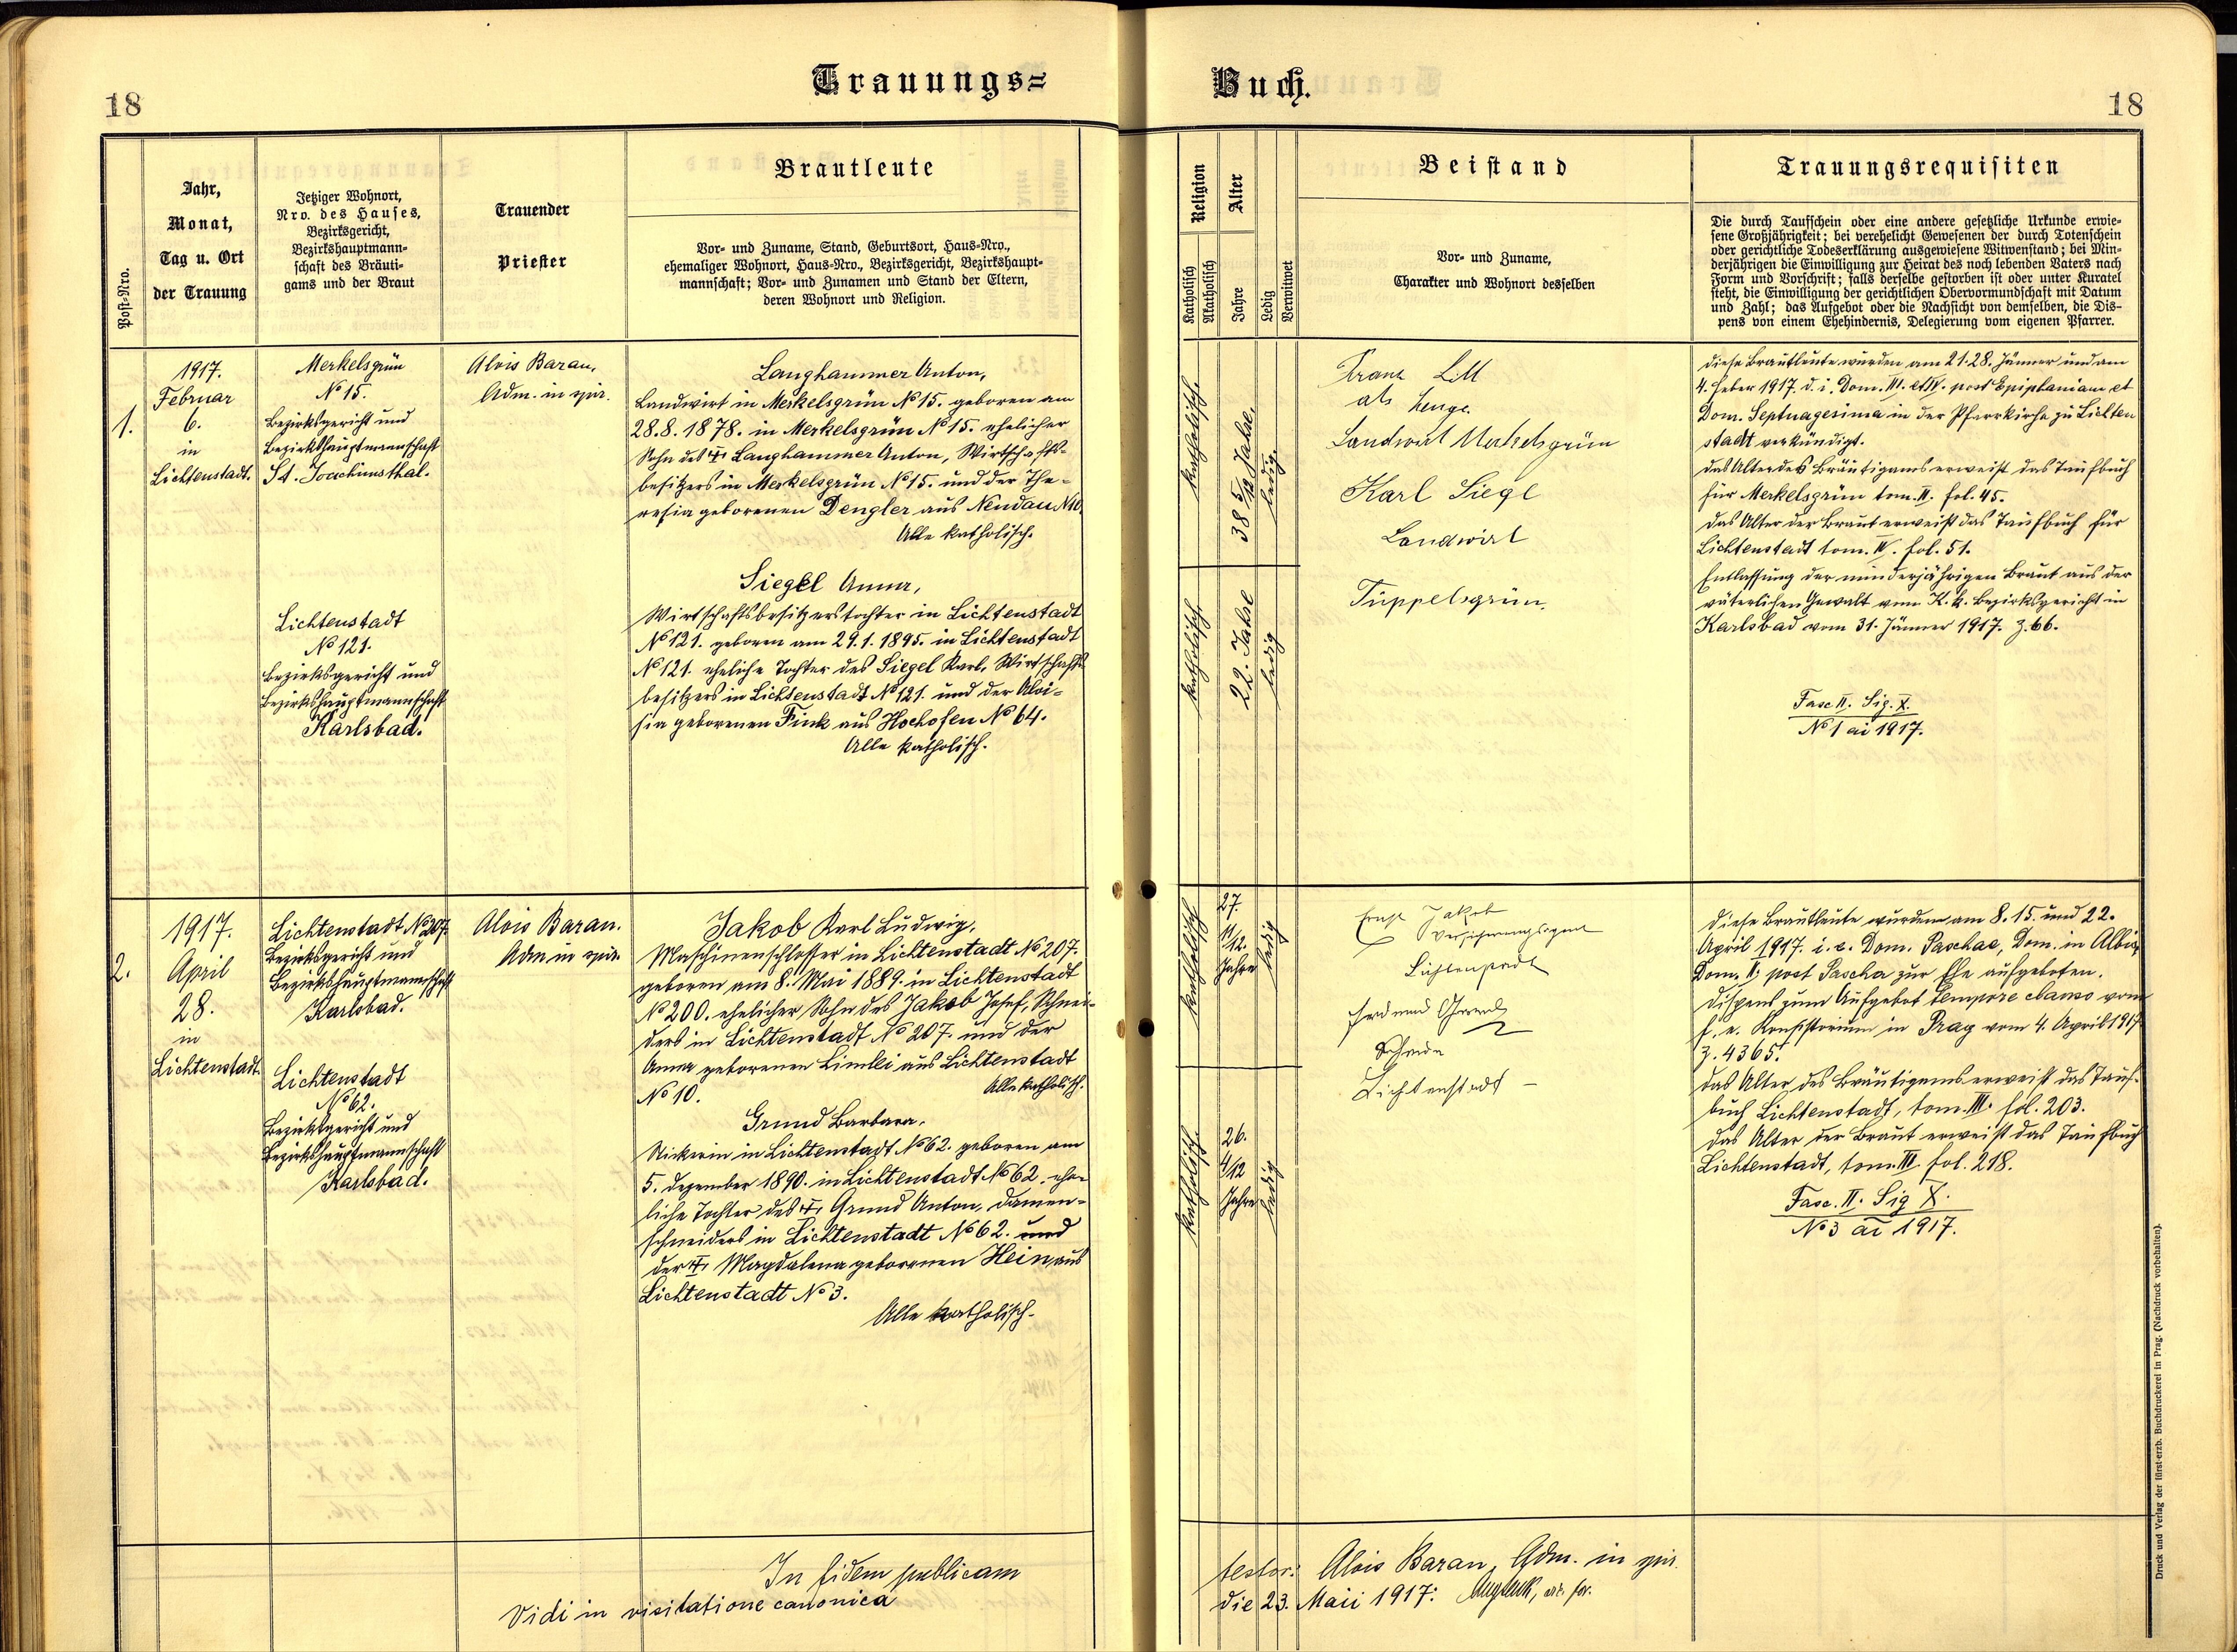 Trauungs=
Buch.
18
18
Post-Nro.
Jahr,
Monat,
Tag u. Ort
der Trauung
Jetziger Wohnort,
Nro. des Hauses,
Bezirksgericht,
Bezirkshauptmann-
schaft des Bräuti-
gams und der Braut
Trauender
Priester
Brautleute
Vor- und Zuname, Stand, Geburtsort, Haus-Nro.,
ehemaliger Wohnort, Haus-Nro., Bezirksgericht, Bezirkshaupt-
mannschaft; Vor- und Zunamen und Stand der Eltern,
deren Wohnort und Religion.
Religion
Katholisch
Akatholisch
Alter
Jahre
Ledig
Verwitwet
Beistand
Vor- und Zuname,
Charakter und Wohnort desselben
Trauungsrequisiten
Die durch Taufschein oder eine andere gesetzliche Urkunde erwie-
sene Großjährigkeit; bei verehelicht Gewesenen der durch Totenschein
oder gerichtliche Todeserklärung ausgewiesene Witwenstand; bei Min-
derjährigen die Einwilligung zur Heirat des noch lebenden Vaters nach
Form und Vorschrift; falls derselbe gestorben ist oder unter Kuratel
steht, die Einwilligung der gerichtlichen Obervormundschaft mit Datum
und Zahl; das Aufgebot oder die Nachsicht von demselben, die Dis-
pens von einem Ehehindernis, Delegierung vom eigenen Pfarrer.
1.
1917.
Februar
6.
in
Lichtenstadt.
Merkelsgrün
No 15.
Bezirksgericht und
Bezirkshauptmannschaft
St. Joachimsthal.
Lichtenstadt
No 121.
Bezirksgericht und
Bezirkshauptmannschaft
Karlsbad.
Alois Baran,
Adm. in spir.
Langhammer Anton,
Landwirt in Merkelsgrün No 15. geboren am
28.8.1878. in Merkelsgrün No 15. ehelicher
Sohn des † Langhammer Anton, Wirtschafts-
besitzers in Merkelsgrün No 15. und der The-
resia geborenen Dengler aus Neudau No
Alle katholisch.
Siegel Anna,
Wirtschaftsbesitzerstochter in Lichtenstadt
No 121. geboren am 29.1.1895. in Lichtenstadt
No 121. eheliche Tochter des Siegel Karl, Wirtschafts
besitzers in Lichtenstadt No 121. und der Aloi-
sia geborenen Fink aus Hochofen No 64.
Alle katholisch.
katholisch.
38 5/12 Jahre.
ledig.
katholisch.
22. Jahre
ledig
Franz Litt
als Zeuge.
Landwirt Merkelsgrün
Karl Siegl
Landwirt
Tüppelsgrün.
Diese Brautleute wurden am 21. 28. Jänner und am
4. Feber 1917. d. i. Dom. III. et IV. post Epiphaniam et
Dom. Septuagesima in der Pfarrkirche zu Lichten
stadt verkündigt.
Das Alter des Bräutigams erweist das Taufbuch
für Merkelsgrün tom. II. fol. 45.
Das Alter der Braut erweist das Taufbuch für
Lichtenstadt tom. IV. fol. 51.
Entlassung der minderjährigen Braut aus der
väterlichen Gewalt vom K. k. Bezirksgericht in
Karlsbad vom 31. Jänner 1917. Z. 66.
Fasc II. Sig. X.
No 1 ai 1917.
2.
1917.
April
28.
in
Lichtenstadt.
Lichtenstadt No 207.
Bezirksgericht und
Bezirkshauptmannschaft
Karlsbad.
Lichtenstadt
No 62.
Bezirksgericht und
Bezirkshauptmannschaft
Karlsbad.
Alois Baran.
Adm in spir.
Jakob Karl Ludwig,
Maschinenschlosser in Lichtenstadt No 207.
geboren am 8. Mai 1889. in Lichtenstadt
No 200. ehelicher Sohn des Jakob Josef, Schnei-
ders in Lichtenstadt No 207. und der
Anna geborenen aus Lichtenstadt
No 10. Alle katholisch.
Grund Barbara,
Stickerin in Lichtenstadt No 62. geboren am
5. Dezember 1890. in Lichtenstadt No 62. ehe-
liche Tochter des † Grund Anton, Damen-
schneiders in Lichtenstadt No 62. und
der † Magdalena geborenen Hein, aus
Lichtenstadt No 3.
Alle katholisch.
katholisch
27.
11/12.
Jahre
ledig
katholisch.
26.
4/12
Jahre
ledig
Ernst Jakob
Versicherungsagent
Lichtenstadt
Lichtenstadt –
Diese Brautleute wurden am 8. 15. und 22.
April 1917. i. e. Dom. Paschae, Dom. in Albis,
Dom. II. post Pascha zur Ehe aufgeboten.
Dispens zum Aufgebot tempore clauso vom
f. e. Konsistorium in Prag vom 4. April 1917
Z. 4365.
Das Alter des Bräutigams erweist das Tauf-
buch Lichtenstadt, tom. III. fol. 203.
Das Alter der Braut erweist das Taufbuch
Lichtenstadt, tom. III. fol. 218.
Fasc. II. Sig X.
No 3 ai 1917.
In fidem publicam
testor: Alois Baran, Adm. in spir.
Vidi in visitatione canonica
die 23. Maii 1917:
Druck und Verlag der fürst-erzb. Buchdruckerei in Prag. (Nachdruck vorbehalten).